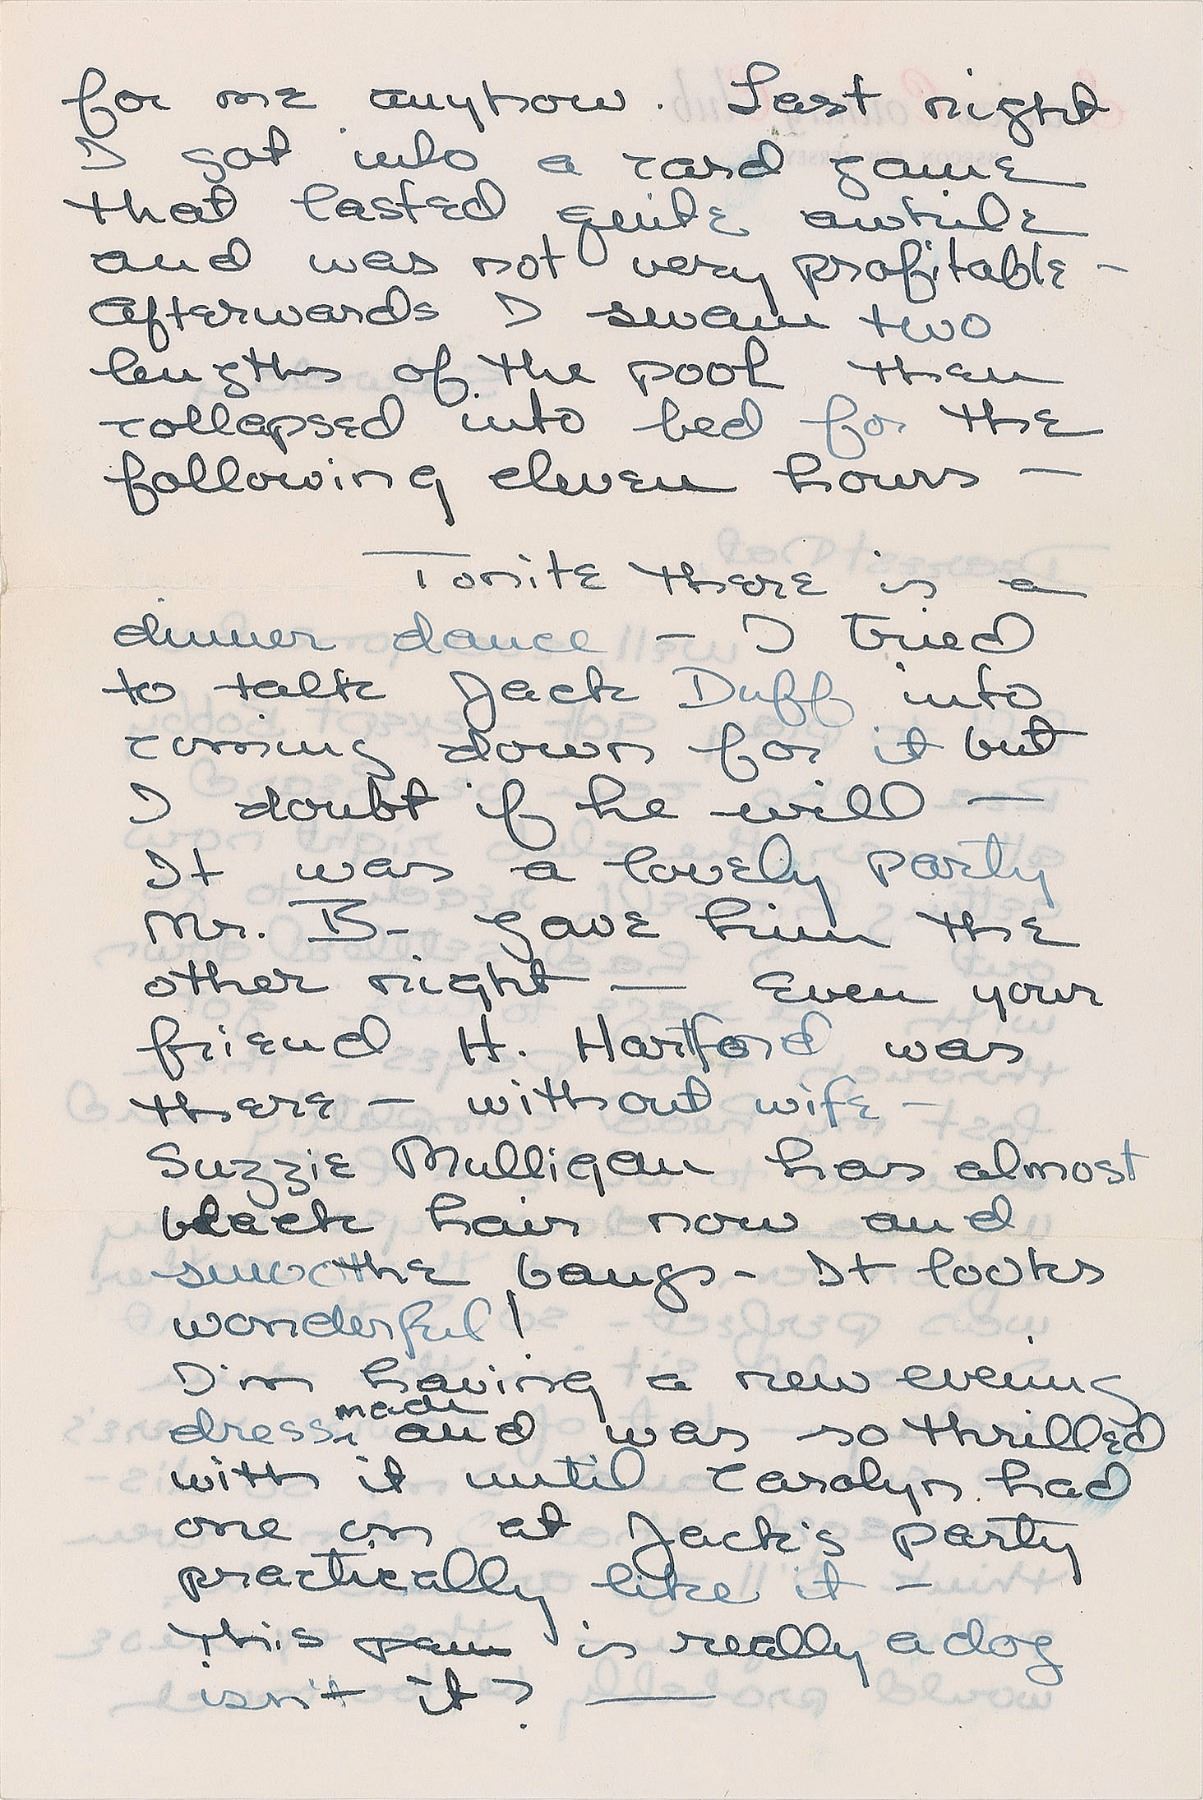 for me anyhow. Last night
I got into a card game
that lasted quite awhile
and was not very profitable -
afterwards I swam two
lengths of the pool then
collapsed into bed for the
following eleven hours —
Tonite there is a
dinner dance - I tried
to talk Jack Duff into
coming down for it but
I doubt if he will —
It was a lovely party
Mr. B- gave him the
other night — Even your
friend H. Hartford was
there - without wife -
Suzzie Mulligan has almost
black hair now and
smoothe bangs - It looks
wonderful!
I'm having a new evening
dress made and was so thrilled
with it until Carolyn had
one on at Jack's party
practically like it -
This pen is really a dog
isn't it? —